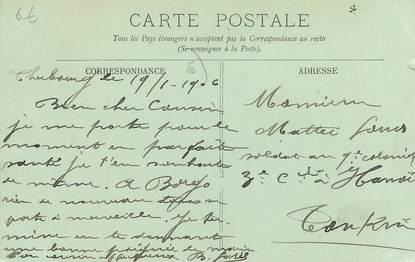 6€
CARTE POSTALE
Tous les Pays étrangers n'acceptent pas la Correspondance au recto
(Se renseigner à la Poste).
CORRESPONDANCE
ADRESSE
Cherbourg le 19/1-1906
Bien cher Cousin
je me porte pour le
moment en parfaite
santé je t'en souhaite
de même. A Borgo
rien de nouveau tous se
porte à merveille. Je ter-
mine en te donnant
une bonne poignée de main
Ton cousin
Monsieur
Mattei
soldat au 9e colonial
3e Cie à Hanoï
Tonkin